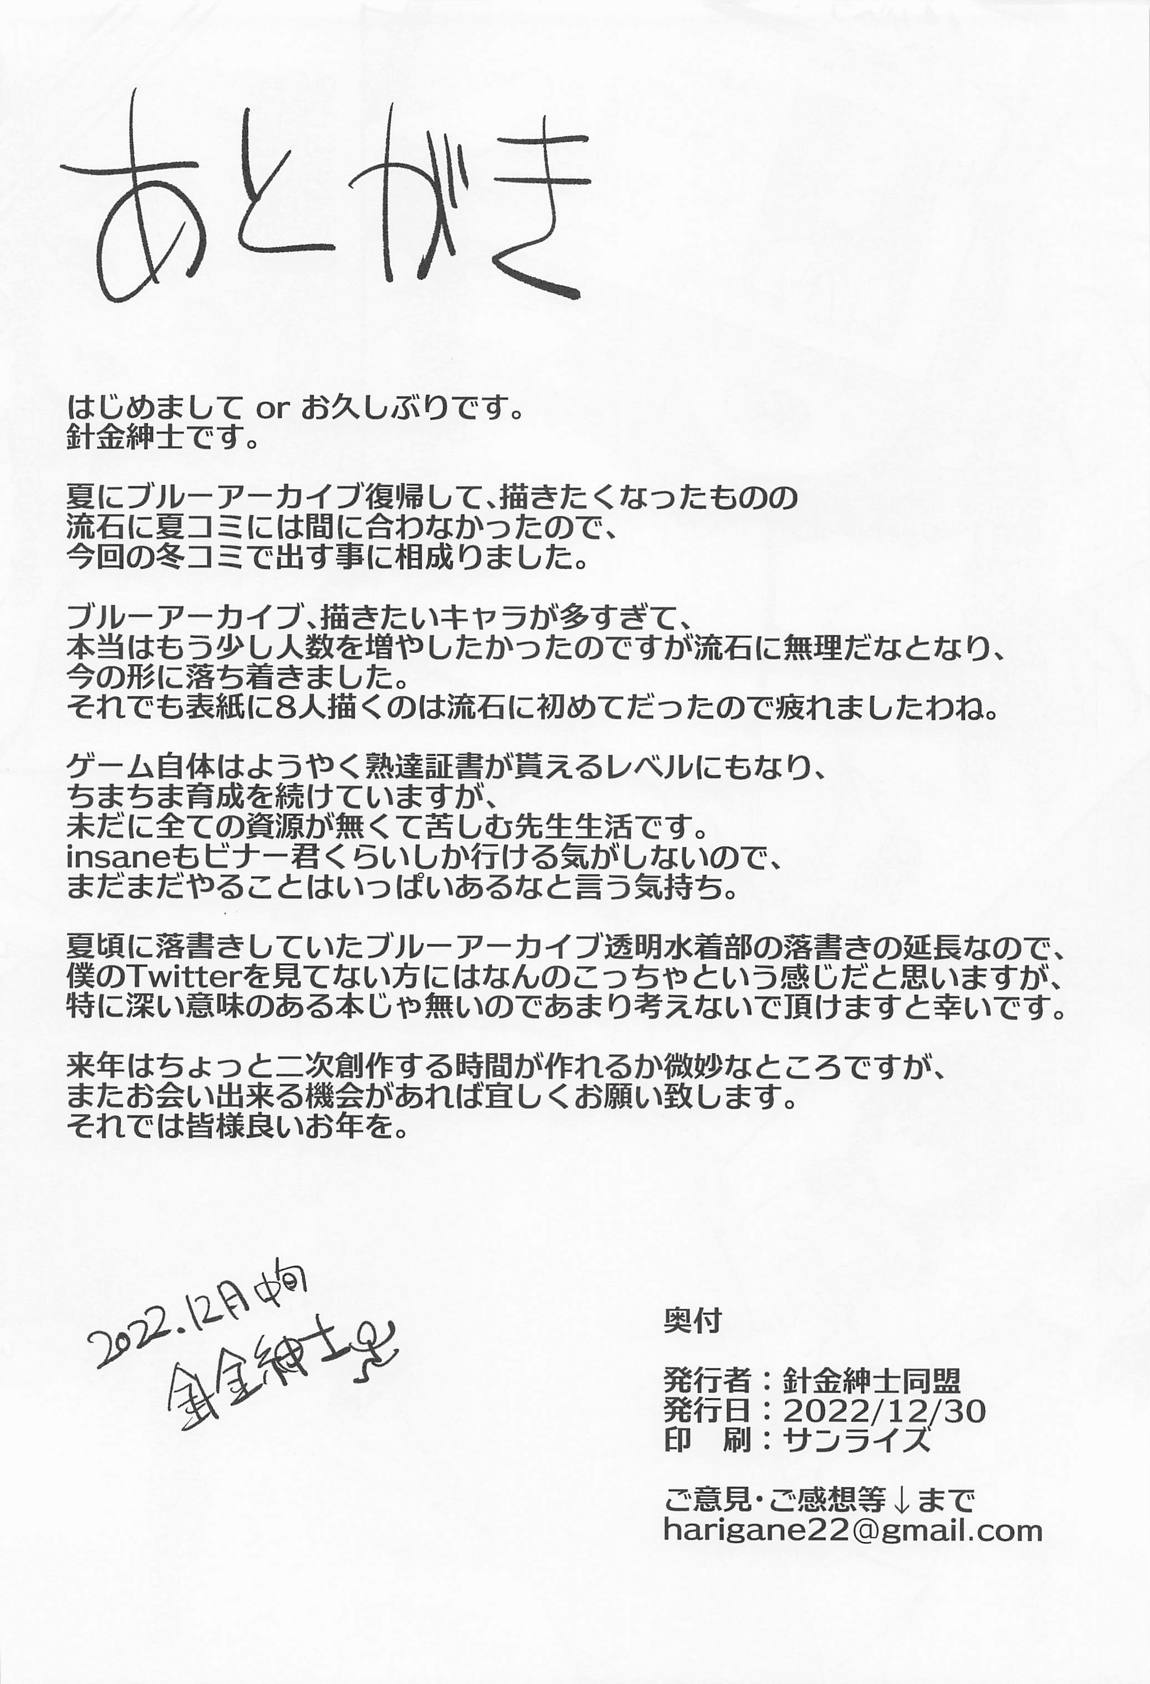 あとがき
はじめまして or お久しぶりです。
針金紳士です。
夏にブルーアーカイブ復帰して、描きたくなったものの
流石に夏コミには間に合わなかったので、
今回の冬コミで出す事に相成りました。
ブルーアーカイブ、描きたいキャラが多すぎて、
本当はもう少し人数を増やしたかったのですが流石に無理だなとなり、
今の形に落ち着きました。
それでも表紙に8人描くのは流石に初めてだったので疲れましたわね。
ゲーム自体はようやく熟達証書が貰えるレベルにもなり、
ちまちま育成を続けていますが、
未だに全ての資源が無くて苦しむ先生生活です。
insaneもビナー君くらいしか行ける気がしないので、
まだまだやることはいっぱいあるなと言う気持ち。
夏頃に落書きしていたブルーアーカイブ透明水着部の落書きの延長なので、
僕のTwitterを見てない方にはなんのこっちゃという感じだと思いますが、
特に深い意味のある本じゃ無いのであまり考えないで頂けますと幸いです。
来年はちょっと二次創作する時間が作れるか微妙なところですが、
またお会い出来る機会があれば宜しくお願い致します。
それでは皆様良いお年を。
2022.12月中旬
針金紳士
奥付
発行者：針金紳士同盟
発行日：2022/12/30
印　刷：サンライズ
ご意見・ご感想等↓まで
harigane22@gmail.com